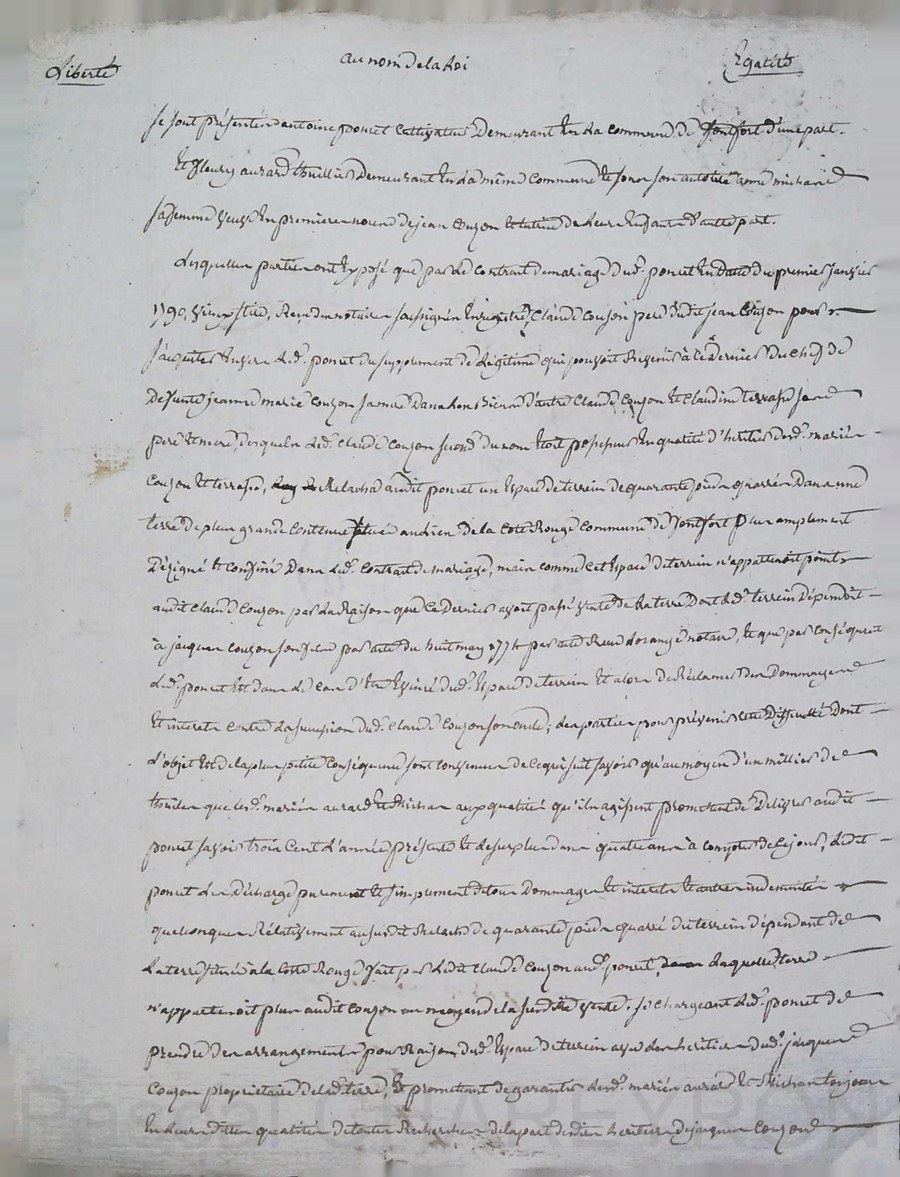 Liberté au nom de la Loi Egalité
se sont présentés antoine poncet cultivateur Demeurant En La commune De Montfort d'une part.
Et fleury aurard thuillier Demeurant En La même Commune Et sous son autorité anne michard
sa femme veuve En premieres noces de jean Couzon Et tutrice de leurs Enfants d'autre part.
Lesquelles parties ont Exposé que par Le Contrat de mariage dud. poncet En datte du premier janvier
1790 vieux stile, Reçu du notaire soussigné Enregistré, Claude Couzon pere dudit jean Couzon pour
s'acquiter Envers Led. poncet du supplement de Légitime qui pouvoit Revenir à ce Dernier Du chef de
Defunte jeanne marie Couzon sa mere Dans les Biens d'autre Claude Couzon Et Claudine terrasse ses
pere Et mere, desquels Led. Claude Couzon second du nom Etoit possesseur En qualité d'heritier desd. mariés
Couzon Et terrasse, Relacha audit poncet un Espace de terrein de quarante pieds quarrés Dans une
terre De plus grande Contenue située au lieu de la Cote Rouge Commune De Montfort plus amplement
Désigné Et Confiné Dans Led. Contrat de mariage, mais comme cet Espace de terrein n'appartenoit point
audit Claude Couzon par La Raison que Ce Dernier avoit passé vente de La terre Dont Led. terrein Dépendoit
à jacques Couzon son fils par acte du huit may 1774 par acte Reçu notaire, Et que par Conséquent
Led. poncet Est dans Le Cas d'Etre Evincé dud. Espace de terrein Et alors de Réclamer Des Dommages
Et interets contre La succession dud. Claude Couzon second; Les parties pour prévenir cette Difficulté Dont
L'objet Est de la plus petite Conséquence sont Convenues de ce qui suit savoir qu'au moyen d'un millier de
thuiles que lesd. mariés aurard Et Michard aux qualités qu'ils agissent promettent de Délivrer audit
poncet savoir trois Cent L'année présente Et Le surplus dans quatre ans à compter de ce jour, Ledit
poncet Les Décharge purement Et simplement de tous Dommages Et interets Et autres indemnités
quelconques Rélativement au susdit Relaché de quarante pieds quarré du terrein dépendant de
La terre située à la Cotte Rouge fait par Ledit Claude Couzon aud. poncet, Laquelle terre
n'appartenoit plus audit Couzon au moyen de la susditte vente. se chargeant Led. poncet de
prendre Des arrangements pour Raison dud. Espace de terrein avec Les heritiers dud. jacques
Couzon propriétaire de Lad. terre, Et promettant de garantir Lesd. mariés aurard Et Michard toujours
En leurs dittes qualités de toutes Recherches de la part desdits heritiers de jacques Couzon